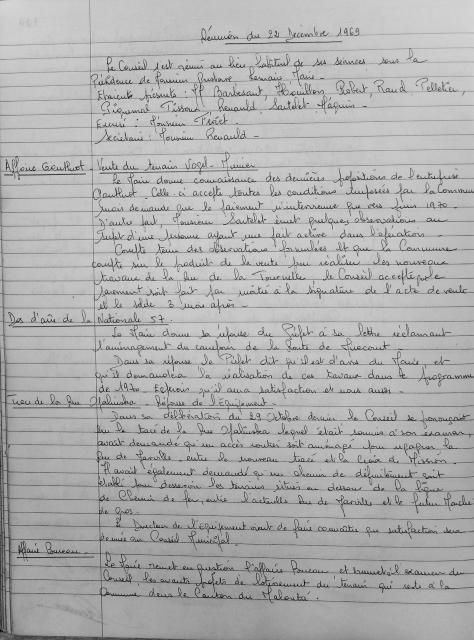 Réunion du 22 Décembre 1969
Le Conseil s'est réuni au lieu habituel de ses séances sous la
Présidence de Monsieur Gustave Maire.
Etaient présents : MM Barbesant Robert, Pelletier,
Piquemal Tissour Renauld, Sartelet
Excusé : Monsieur
Secrétaire : Monsieur Renauld -
Affaire Gauthrot - Vente du terrain Vogel-
Le Maire donne connaissance des dernières propositions de l'entreprise
Gauthrot. Celle-ci accepte toutes les conditions imposées par la Commune
mais demande que le paiement n'intervienne que vers juin 1970.
D'autre part, Monsieur Sartelet émet quelques observations au
sujet d'une personne ayant une part active dans l'opération -
Compte tenu des observations formulées et que la Commune
compte sur le produit de la vente pour réaliser les nouveaux
travaux de la Rue de la Tournelle, le Conseil accepte que le
paiement soit fait par moitié à la signature de l'acte de vente
et le solde 3 mois après -
de la Nationale 57.
Le Maire donne la réponse du Préfet à sa lettre réclamant
l'aménagement du carrefour de la Route de
Dans sa réponse le Préfet dit qu'il est d'avis du Maire et
qu'il demandera la réalisation de ces travaux dans le programme
de 1970 - Espérons qu'il aura satisfaction et nous aussi -
de la Rue - Réponse de l'Equipement -
Dans sa délibération du 29 Octobre dernier le Conseil se prononçant
sur le tracé de la Rue lequel était soumis à son examen
avait demandé qu'un accès routier soit aménagé pour regagner la
Rue de entre le nouveau tracé et la Croix de Mission.
Il avait également demandé qu'un chemin de soit
établi pour desservir les terrains situés au dessous de la ligne
de Chemin de fer, entre l'actuelle Rue de et le futur Marché
de gros.
Le Directeur de l'Equipement vient de faire connaître que satisfaction sera
donnée au Conseil Municipal.
Affaire
Le Maire remet en question l'affaire et soumet à l'examen du
Conseil, les avants projets de lotissement du terrain qui reste à la
Commune dans le Canton du